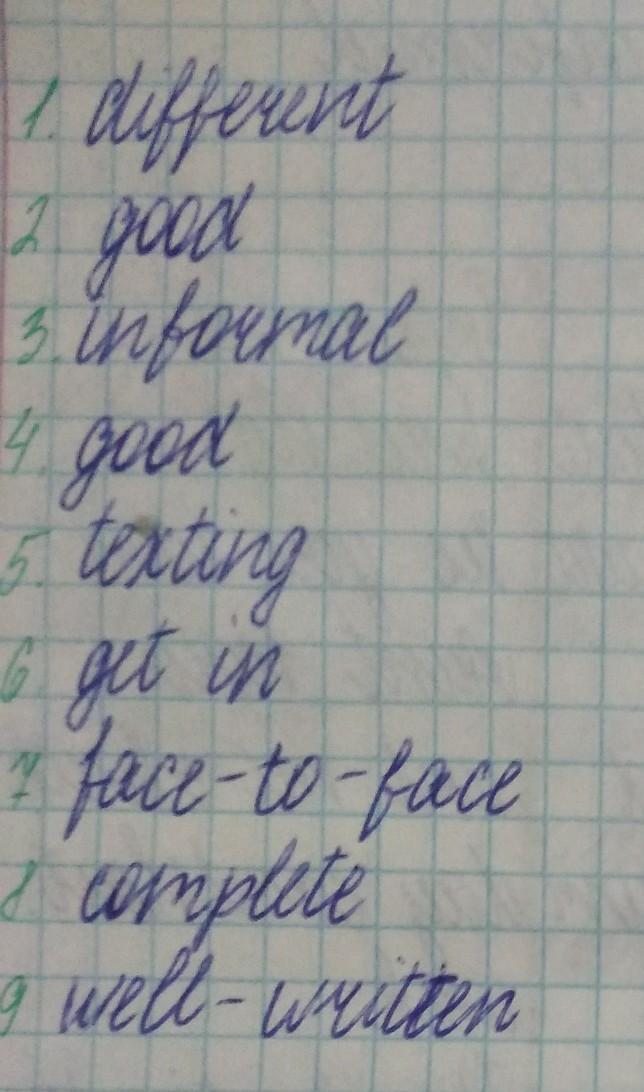 1. different
2 good
3. informal
4. good
5. texting
6 get in
7 face-to-face
8. complete
9 well-written